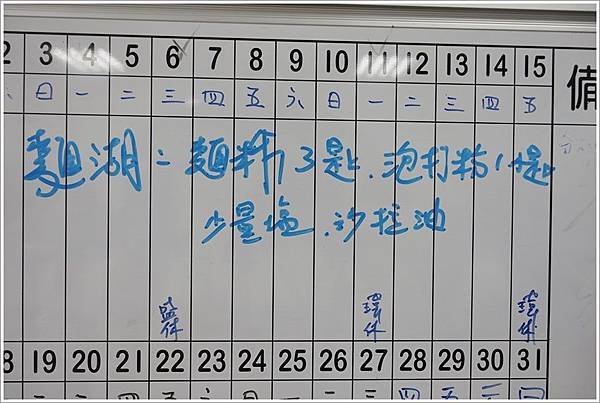 2 3 4 5 6 7 8 9 10 11 12 13 14 15 備
六 日 一 二 三 四 五 六 日 一 二 三 四 五
麵湖:麵粉3匙.泡打粉1小匙
少量塩.沙拉油
環休
8 19 20 21 22 23 24 25 26 27 28 29 30 31